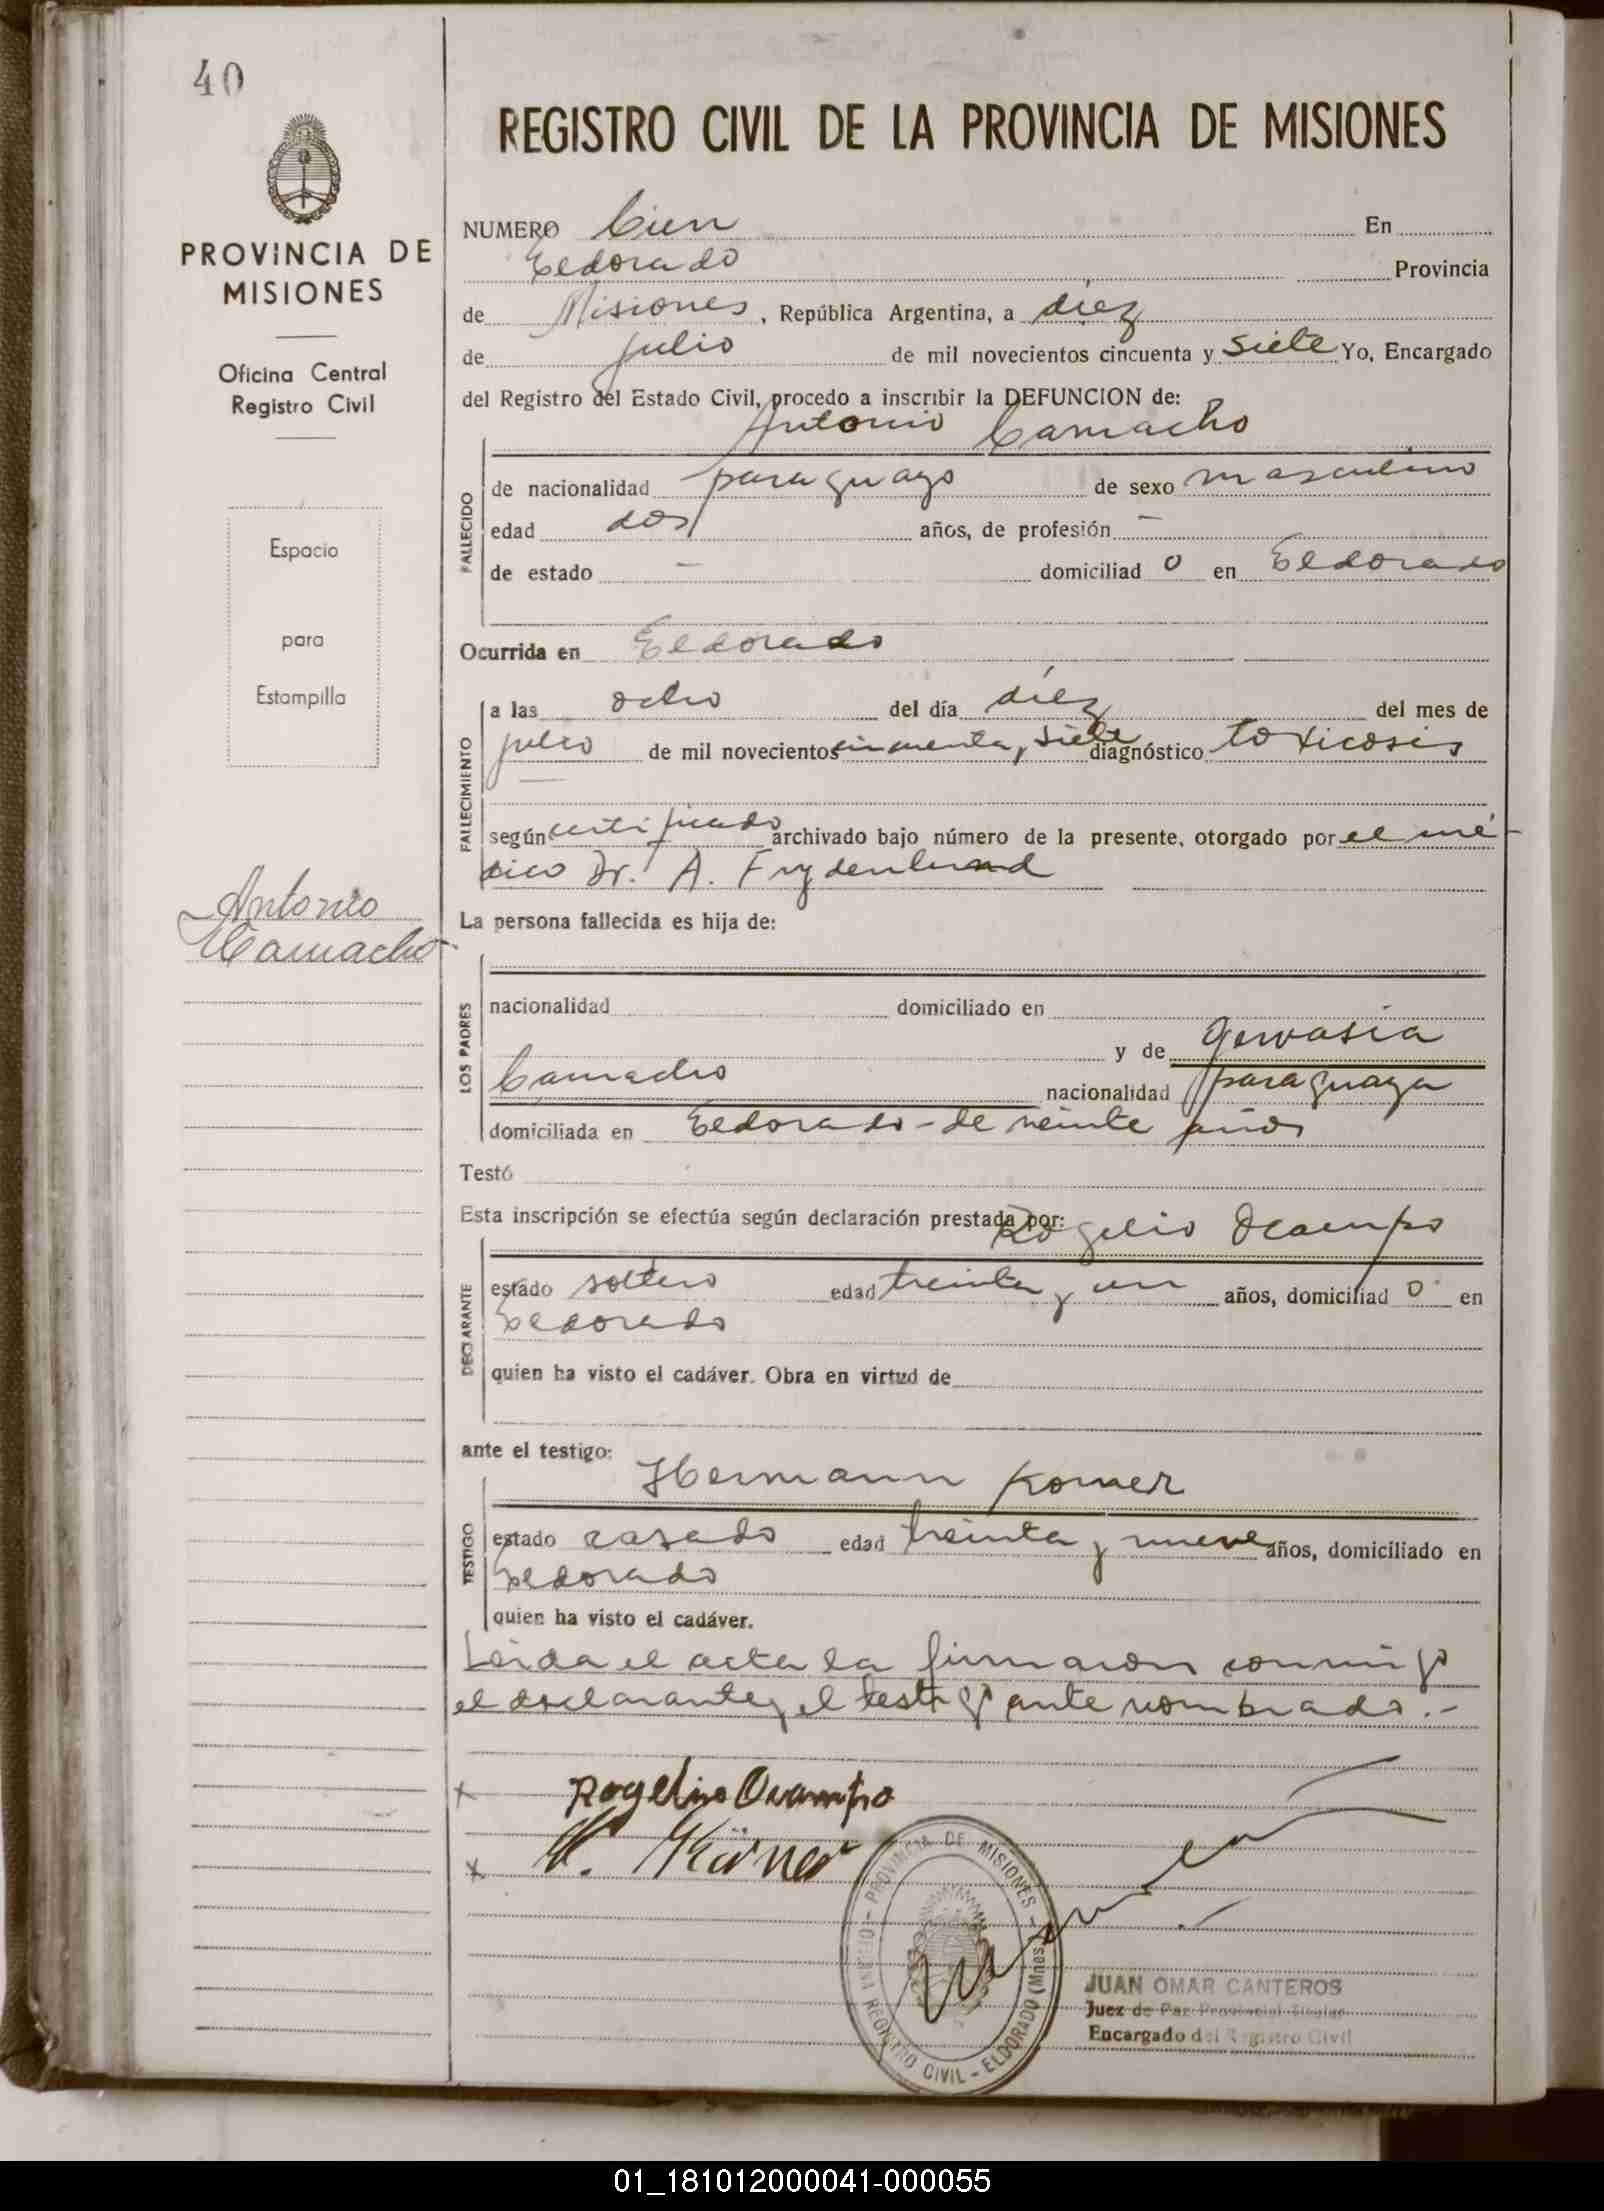 40
PROVINCIA DE
MISIONES
Oficina Central
Registro Civil
Espacio
para
Estampilla
Antonio
Camacho
REGISTRO CIVIL DE LA PROVINCIA DE MISIONES
NUMERO Cien En
Eldorado Provincia
de Misiones, República Argentina, a diez
de julio de mil novecientos cincuenta y siete Yo, Encargado
del Registro del Estado Civil, procedo a inscribir la DEFUNCION de:
Antonio Camacho
FALLECIDO
de nacionalidad paraguayo de sexo masculino
edad dos años, de profesión —
de estado — domiciliad o en Eldorado
Ocurrida en Eldorado
FALLECIMIENTO
a las ocho del día diez del mes de
julio de mil novecientos cincuenta y siete diagnóstico toxicosis
según certificado archivado bajo número de la presente, otorgado por el mé-
dico Dr. A. Frydenlund
La persona fallecida es hija de:
LOS PADRES
nacionalidad domiciliado en
y de Gervasia
Camacho nacionalidad paraguaya
domiciliada en Eldorado - de veinte años
Testó
Esta inscripción se efectúa según declaración prestada por: Rogelio Ocampo
DECLARANTE
estado soltero edad treinta y un años, domiciliad o en
Eldorado
quien ha visto el cadáver. Obra en virtud de
ante el testigo:
Hermann Korner
TESTIGO
estado casado edad treinta y nueve años, domiciliado en
Eldorado
quien ha visto el cadáver.
Leida el acta la firmaron conmigo
el declarante y el testigo ante nombrado.-
x Rogelio Ocampo
x H. Körner
PROVINCIA DE MISIONES - REGISTRO CIVIL - ELDORADO (Mnes)
JUAN OMAR CANTEROS
Juez de Paz Provincial Titular
Encargado del Registro Civil
01_181012000041-000055